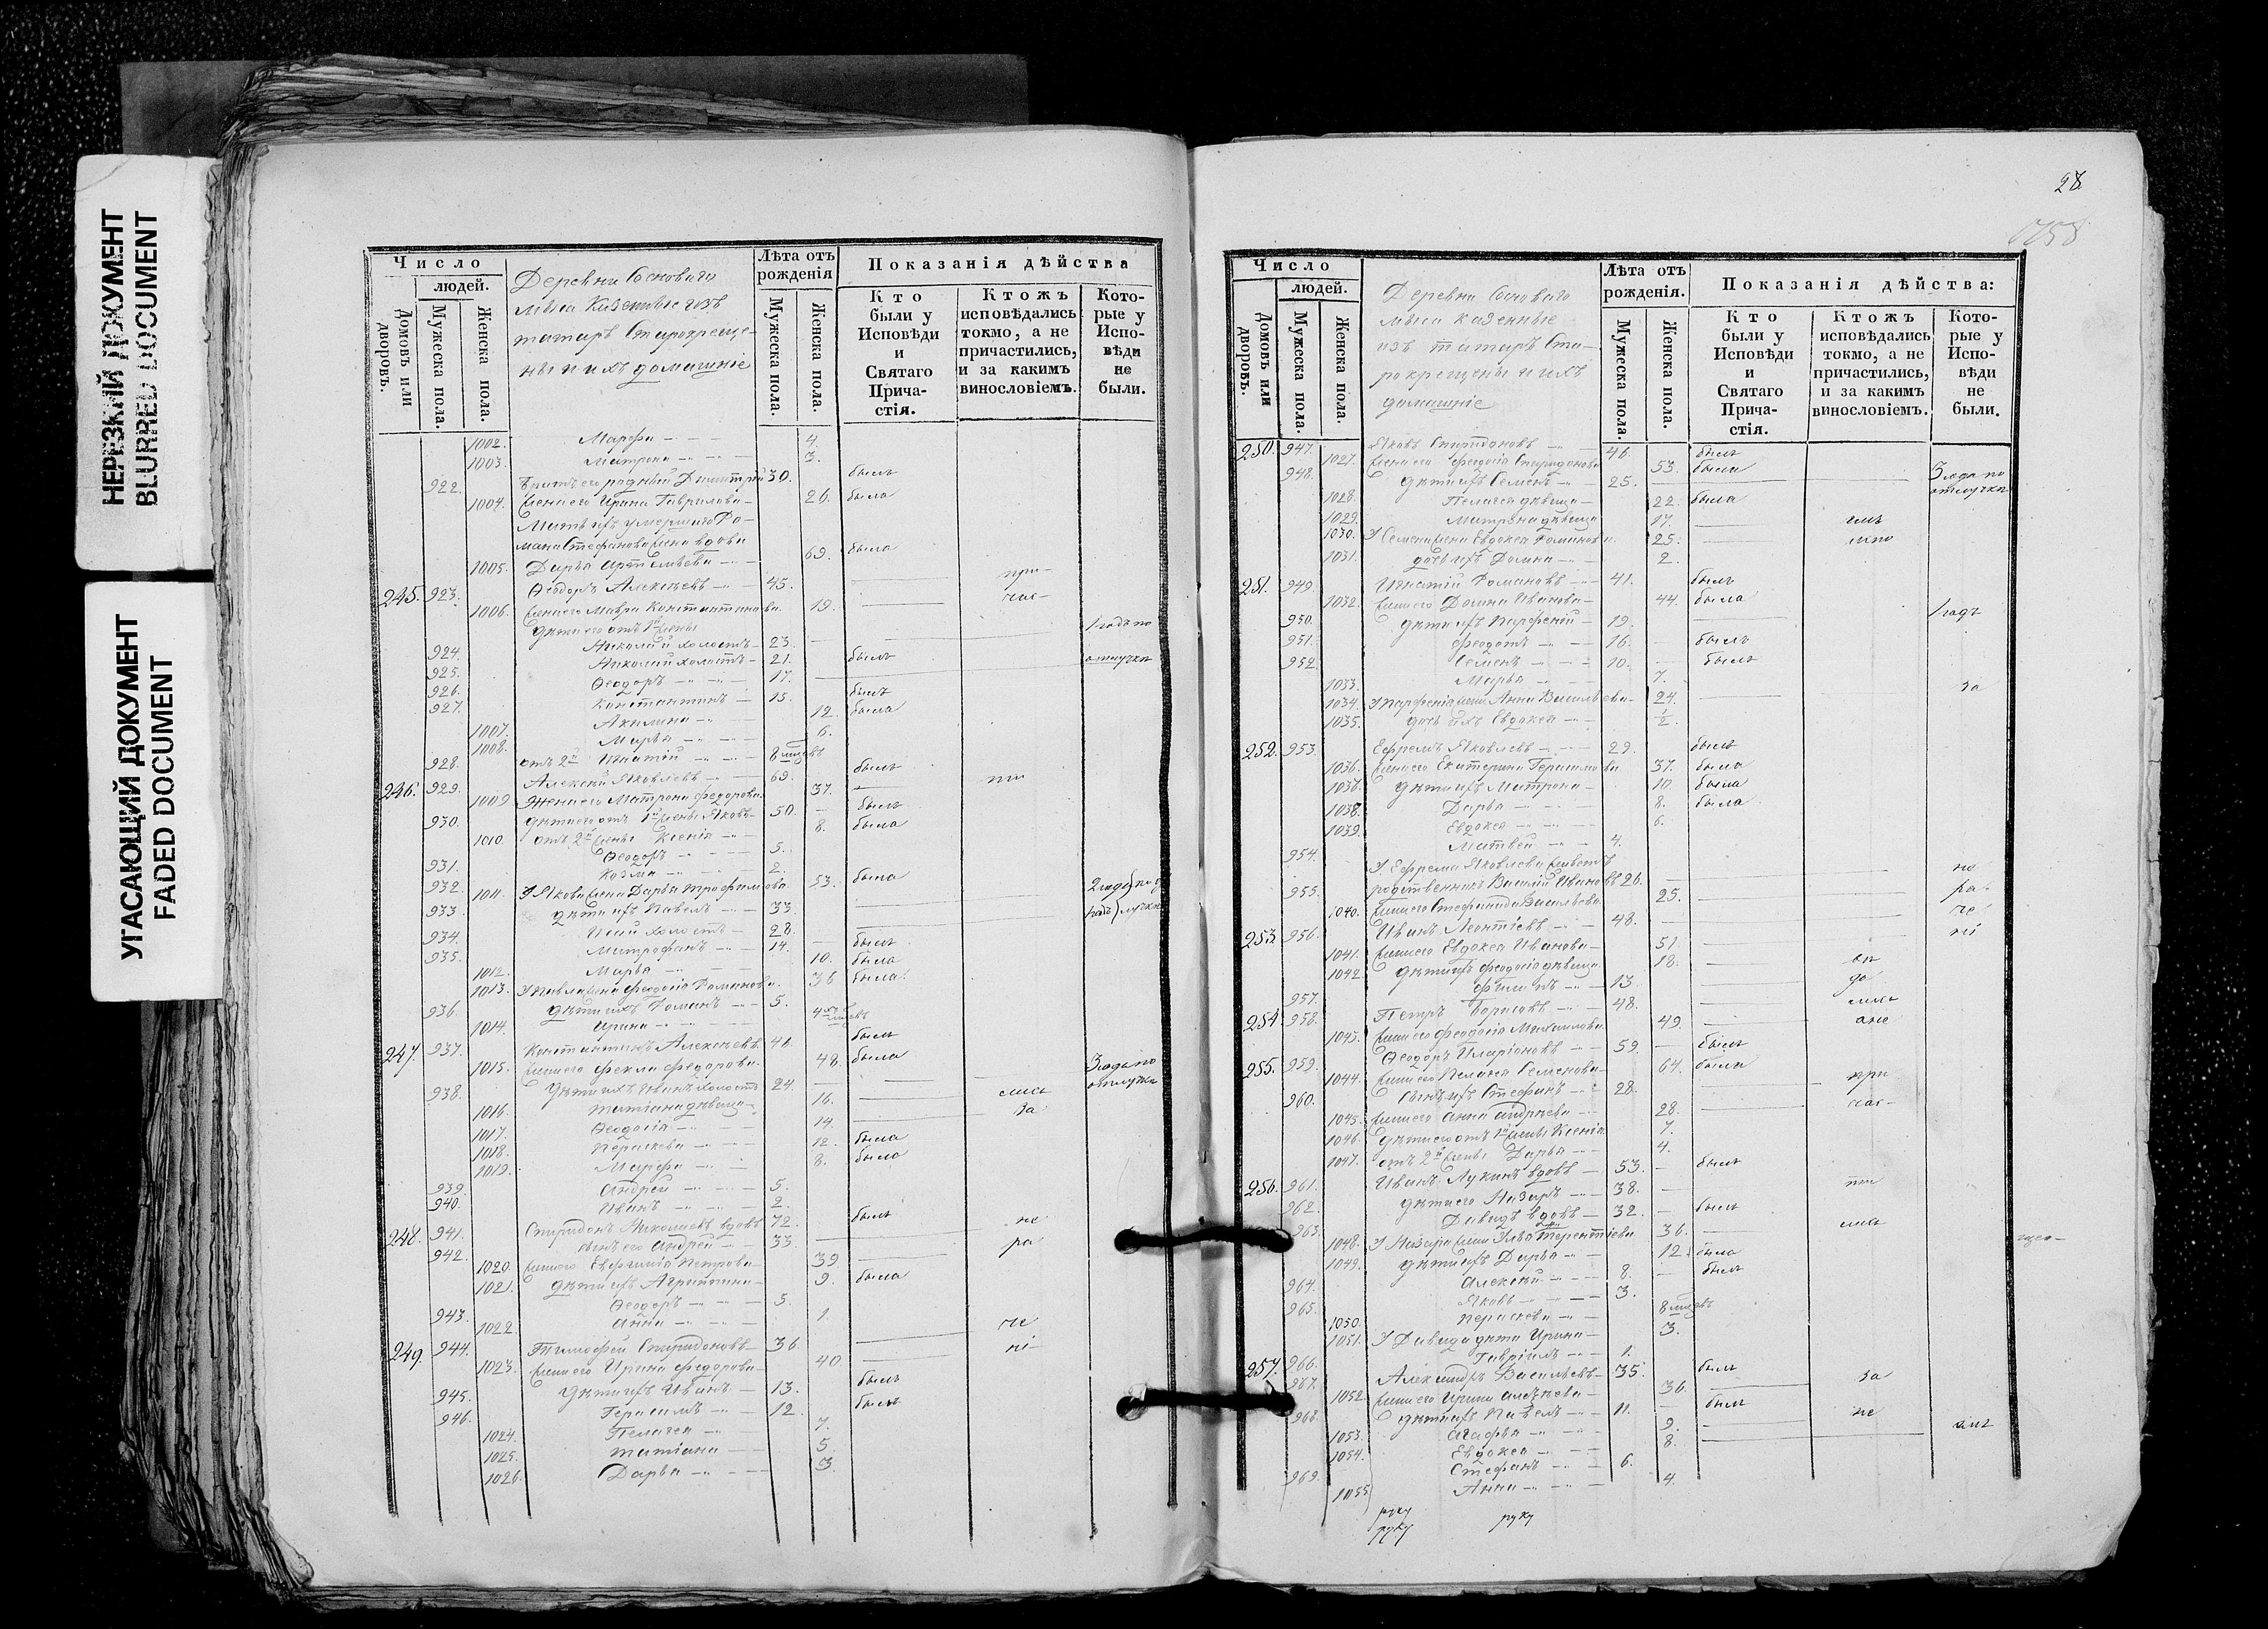 НЕРЕЗКИЙ ДОКУМЕНТ
BLURRED DOCUMENT
УГАСАЮЩИЙ ДОКУМЕНТ
FADED DOCUMENT
Число
людей.
Домовъ или дворовъ.
Мужеска пола.
Женска пола.
Деревни Сосноваго
мыса Казенные изъ
татаръ Старокреще-
ны и ихъ домашніе
Лѣта отъ рожденія
Мужеска пола.
Женска пола.
Показанія дѣйства
Кто были у Исповѣди и Святаго Прича-стія.
Ктожъ исповѣдались токмо, а не причастились, и за какимъ винословіемъ.
Кото-рые у Испо-вѣди не были.
1002. Марфа 4.
1003. Матрона 3.
922. Братъ его родный Димитрій 30. былъ
1004. Жена его Ирина Гаврилова 26. была
Мать ихъ умершаго Ро-
мана Стефанова жена вдова
1005. Дарья 69. была
245. 923. Ѳеодоръ Алексѣевъ 45. при-
1006. Жена его Мавра Константинова 19. час-
Дѣти его отъ 1й жены
924. Николай холостъ 23. 1 годъ по
925. Николай холостъ 21. былъ отлучкѣ
926. Ѳеодоръ 17.
927. Константинъ 15. былъ
1007. Акилина 12. была
1008. Марья 6.
928. отъ 2й Игнатій 8 мцвъ
246. 929. Алексѣй Яковлевъ 69. былъ
1009 Жена его Матрона Федорова 37.
930. Дѣти его отъ 1й жены Яковъ 50. былъ
1010. отъ 2й жены Ксенія 8. была
931. Ѳеодоръ 5.
932. Козма 2.
1011. У Якова жена Дарья Трофимова 53. была
933. Дѣти ихъ Павелъ 33. 2 года
934. холостъ 28.
935. Митрофанъ 14. былъ
1012. Марья 10. была
1013. У Павла жена Феодосія Романова 36 была
936. Дѣти ихъ Романъ 5.
1014. Ирина 4
247. 937. Константинъ Алексѣевъ 46. былъ
1015. Жена его Фекла Федорова 48. была
938. Дѣти ихъ Иванъ холостъ 24. 3 года по отлучкѣ
1016. Татіана дѣвица 16. лись
1017. Ѳеодосія 14. за
1018. Параскева 12. была
1019. Марфа 8. была
939. Андрей 5.
940. Иванъ 2.
248. 941. Спиридонъ Николаевъ вдовъ 72. былъ
942. сынъ его Андрей 33. не
1020. Жена его Евфимія Петрова 39. ра
1021. Дѣти ихъ Агрипина 9. была
943. Ѳеодоръ 5.
1022. Анна 1.
249. 944. Тимофей Спиридоновъ 36. че
1023. Жена его Ирина Федорова 40 ні-
945. Дѣти ихъ Иванъ 13. былъ
946. Герасимъ 12. былъ
1024. Пелагея 7.
1025. Татіана 5.
1026. Дарья 3.
28
Число
людей.
Домовъ или дворовъ.
Мужеска пола.
Женска пола.
Деревни Сосноваго
мыса казенные
изъ татаръ Ста-
рокрещены и ихъ
домашніе
Лѣта отъ рожденія.
Мужеска пола.
Женска пола.
Показанія дѣйства:
Кто были у Исповѣди и Святаго Прича-стія.
Ктожъ исповѣдались токмо, а не причастились, и за какимъ винословіемъ.
Кото-рые у Испо-вѣди не были.
250. 947. Яковъ Спиридоновъ 46. былъ
1027. Жена его Феодосія Спиридонова 53. была
948. Дѣти ихъ Семенъ 25. 3 года по отлучкѣ
1028. Пелагея дѣвица 22. была
1029. Матрона дѣвица 17.
1030. У Семена жена Евдокея Романова 25.
1031. дочь ихъ Домна 2.
251. 949. Игнатій Романовъ 41. былъ
1032. Жена его Домна Иванова 44. была
950. Дѣти ихъ Парфеній 19. 1 годъ
951. Феодотъ 16. былъ
952. Семенъ 10. былъ
1033. Марья 7.
1034. У Парфенія жена Анна Васильева 24. за
1035. дочь ихъ Евдокея ½.
252. 953. Ефремъ Яковлевъ 29. былъ
1036. Жена его Екатерина Герасимова 37. была
1036. Дѣти ихъ Матрона 10. была
1038. Дарья 8. была
1039. Евдокея 6.
954. Матвей 4.
У Ефрема Яковлева живетъ
955. родственникъ Василій Ивановъ 26. не
1040. Жена его Стефанида Васильева 25. ра-
253. 956. Иванъ Леонтіевъ 48. че
1041. Жена его Евдокея Иванова 51. ні
1042. Дѣти ихъ Феодосія дѣвица 18.
957. Филипъ 13 до
254. 958. Петръ Борисовъ 48.
1043. Жена его Феодосія Михаилова 49.
255. 959. Ѳеодоръ Иларіоновъ 59. былъ
1044. Жена его Пелагея Семенова 64. была
960. Сынъ ихъ Стефанъ 28. при
1045. Жена его Анна Андрѣева 28. час-
1046. Дѣти его отъ 1й жены Ксенія 7.
1047. отъ 2й жены Дарья 4.
256. 961. Иванъ Лукинъ вдовъ 53. былъ
962. Дѣти его Назаръ 38.
963. Давидъ вдовъ 32. былъ
1048. У Назара жена Терентіева 36. лись
1049. Дѣти ихъ Дарья 12. была
964. Алексѣй 8. былъ
965. Яковъ 3.
1050. Параскева 8 мцвъ
1051. У Давида дѣти Ирина 3.
966. Гавріилъ 1.
257. 967. Александръ Васильевъ 35. былъ
1052. Жена его Ирина 36. за
968. Дѣти ихъ Павелъ 11. былъ
1053. Агафья 9. не
1054. Евдокея 8.
969. Стефанъ 6.
1055 Анна 4.
руку
руку руку